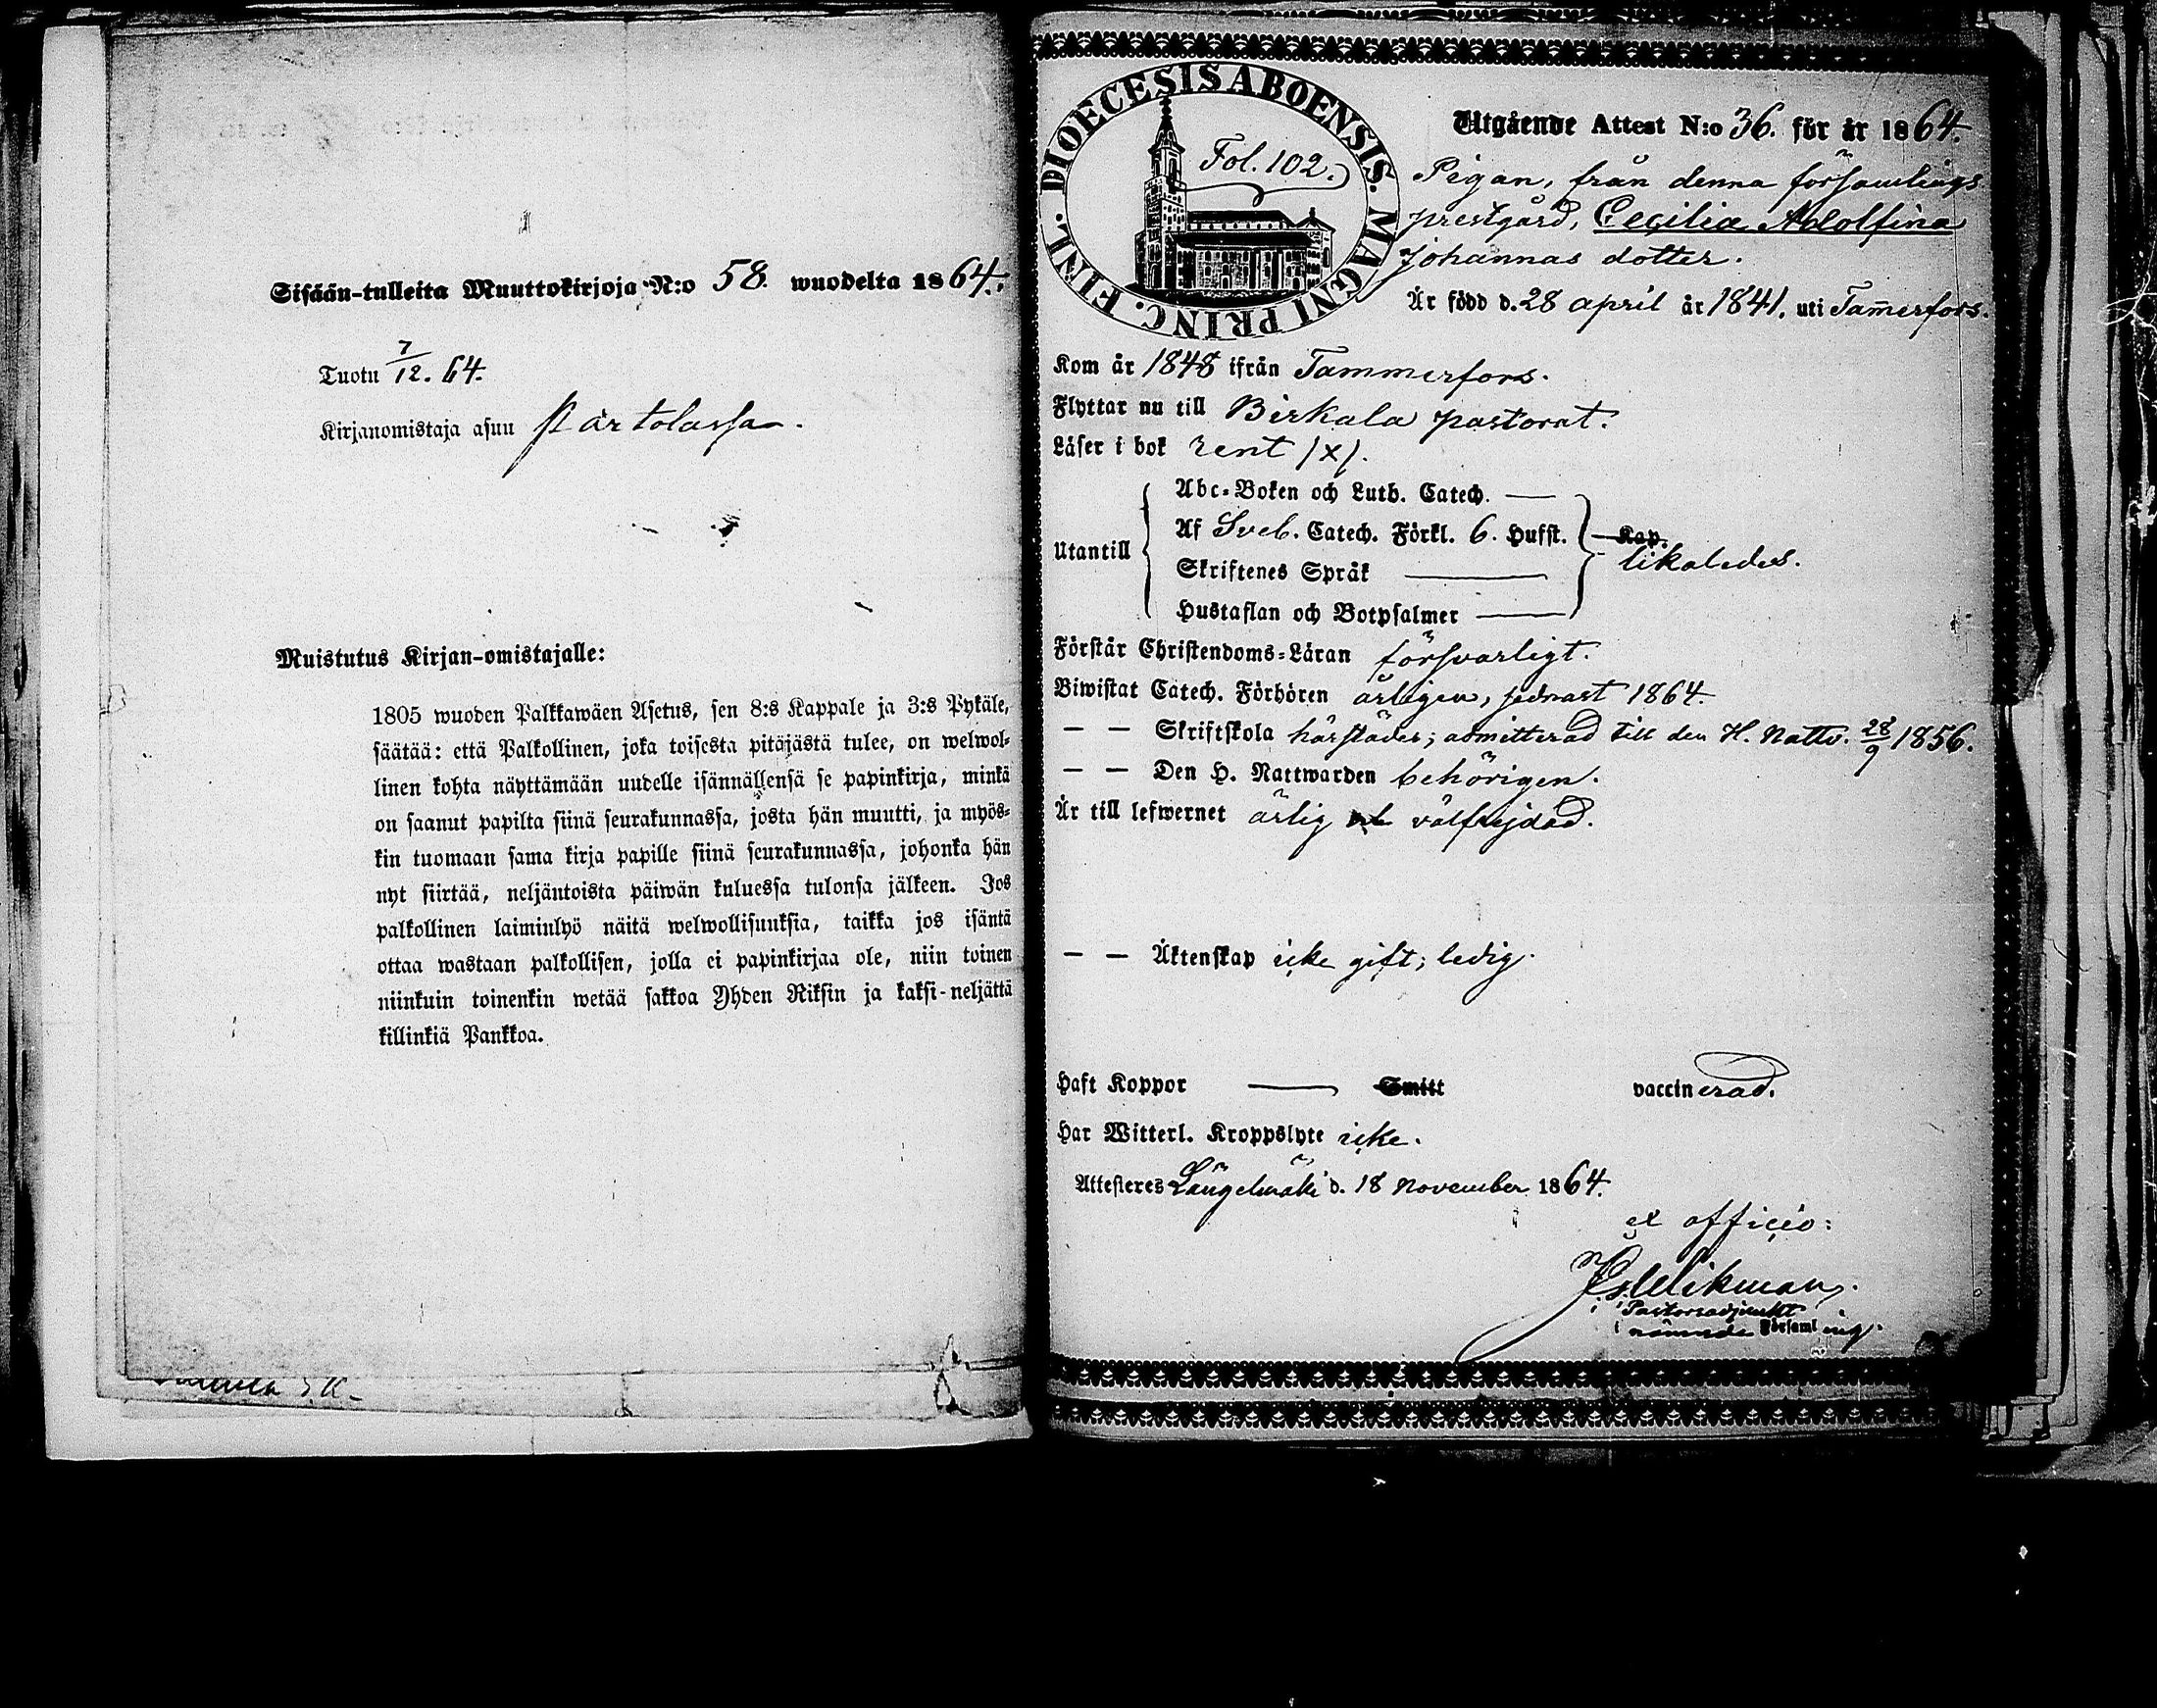 Sisään-tulleita Muuttokirjoja N:o 58. wuodelta 1864.
Tuotu 7/12. 64.
Kirjanomistaja asuu Partolassa.
Muistutus Kirjan-omistajalle:
1805 wuoden Palkkawäen Asetus, sen 8:s Kappale ja 3:s Pykäle,
säätää: että Palkollinen, joka toisesta pitäjästä tulee, on welwol-
linen kohta näyttämään uudelle isännällensä se papinkirja, minkä
on saanut papilta siinä seurakunnassa, josta hän muutti, ja myös-
kin tuomaan sama kirja papille siinä seurakunnassa, johonka hän
nyt siirtää, neljäntoista päiwän kuluessa tulonsa jälkeen. Jos
palkollinen laiminlyö näitä welwollisuuksia, taikka jos isäntä
ottaa wastaan palkollisen, jolla ei papinkirjaa ole, niin toinen
niinkuin toinenkin wetää sakkoa Yhden Riksin ja kaksi-neljättä
killinkiä Pankkoa.
DIOECESIS ABOENSIS. MAGNI PRINC. FINL.
Fol. 102.
Utgående Attest N:o 36. för år 1864.
Pigan, från denna församlings
prestgård, Cecilia Adolfina
Johannas dotter.
Är född d. 28 april år 1841. uti Tam̄erfors.
Kom år 1848 ifrån Tammerfors.
Flyttar nu till Birkala pastorat.
Läser i bok rent (x).
Utantill
Abc-Boken och Luth. Catech. —
Af Sveb. Catech. Förkl. 6. Hufst. Kap.
Skriftenes Språk —
likaledes.
Hustaflan och Botpsalmer —
Förstår Christendoms-Läran försvarligt.
Biwistat Catech. Förhören årligen, sednast 1864.
— — Skriftskola härstädes; admitterad till den H. Nattv. 28/9 1856.
— — Den H. Nattwarden behörigen.
Är till lefwernet ärlig och välfrejdad.
— — Äktenskap icke gift; ledig.
Haft Koppor — Smitt vaccinerad.
Har Witterl. Kroppslyte icke.
Attesteres Längelmäki d. 18 November 1864.
ex officio:
Wikman.
Pastorsadjunkt
i nämnde Församling.